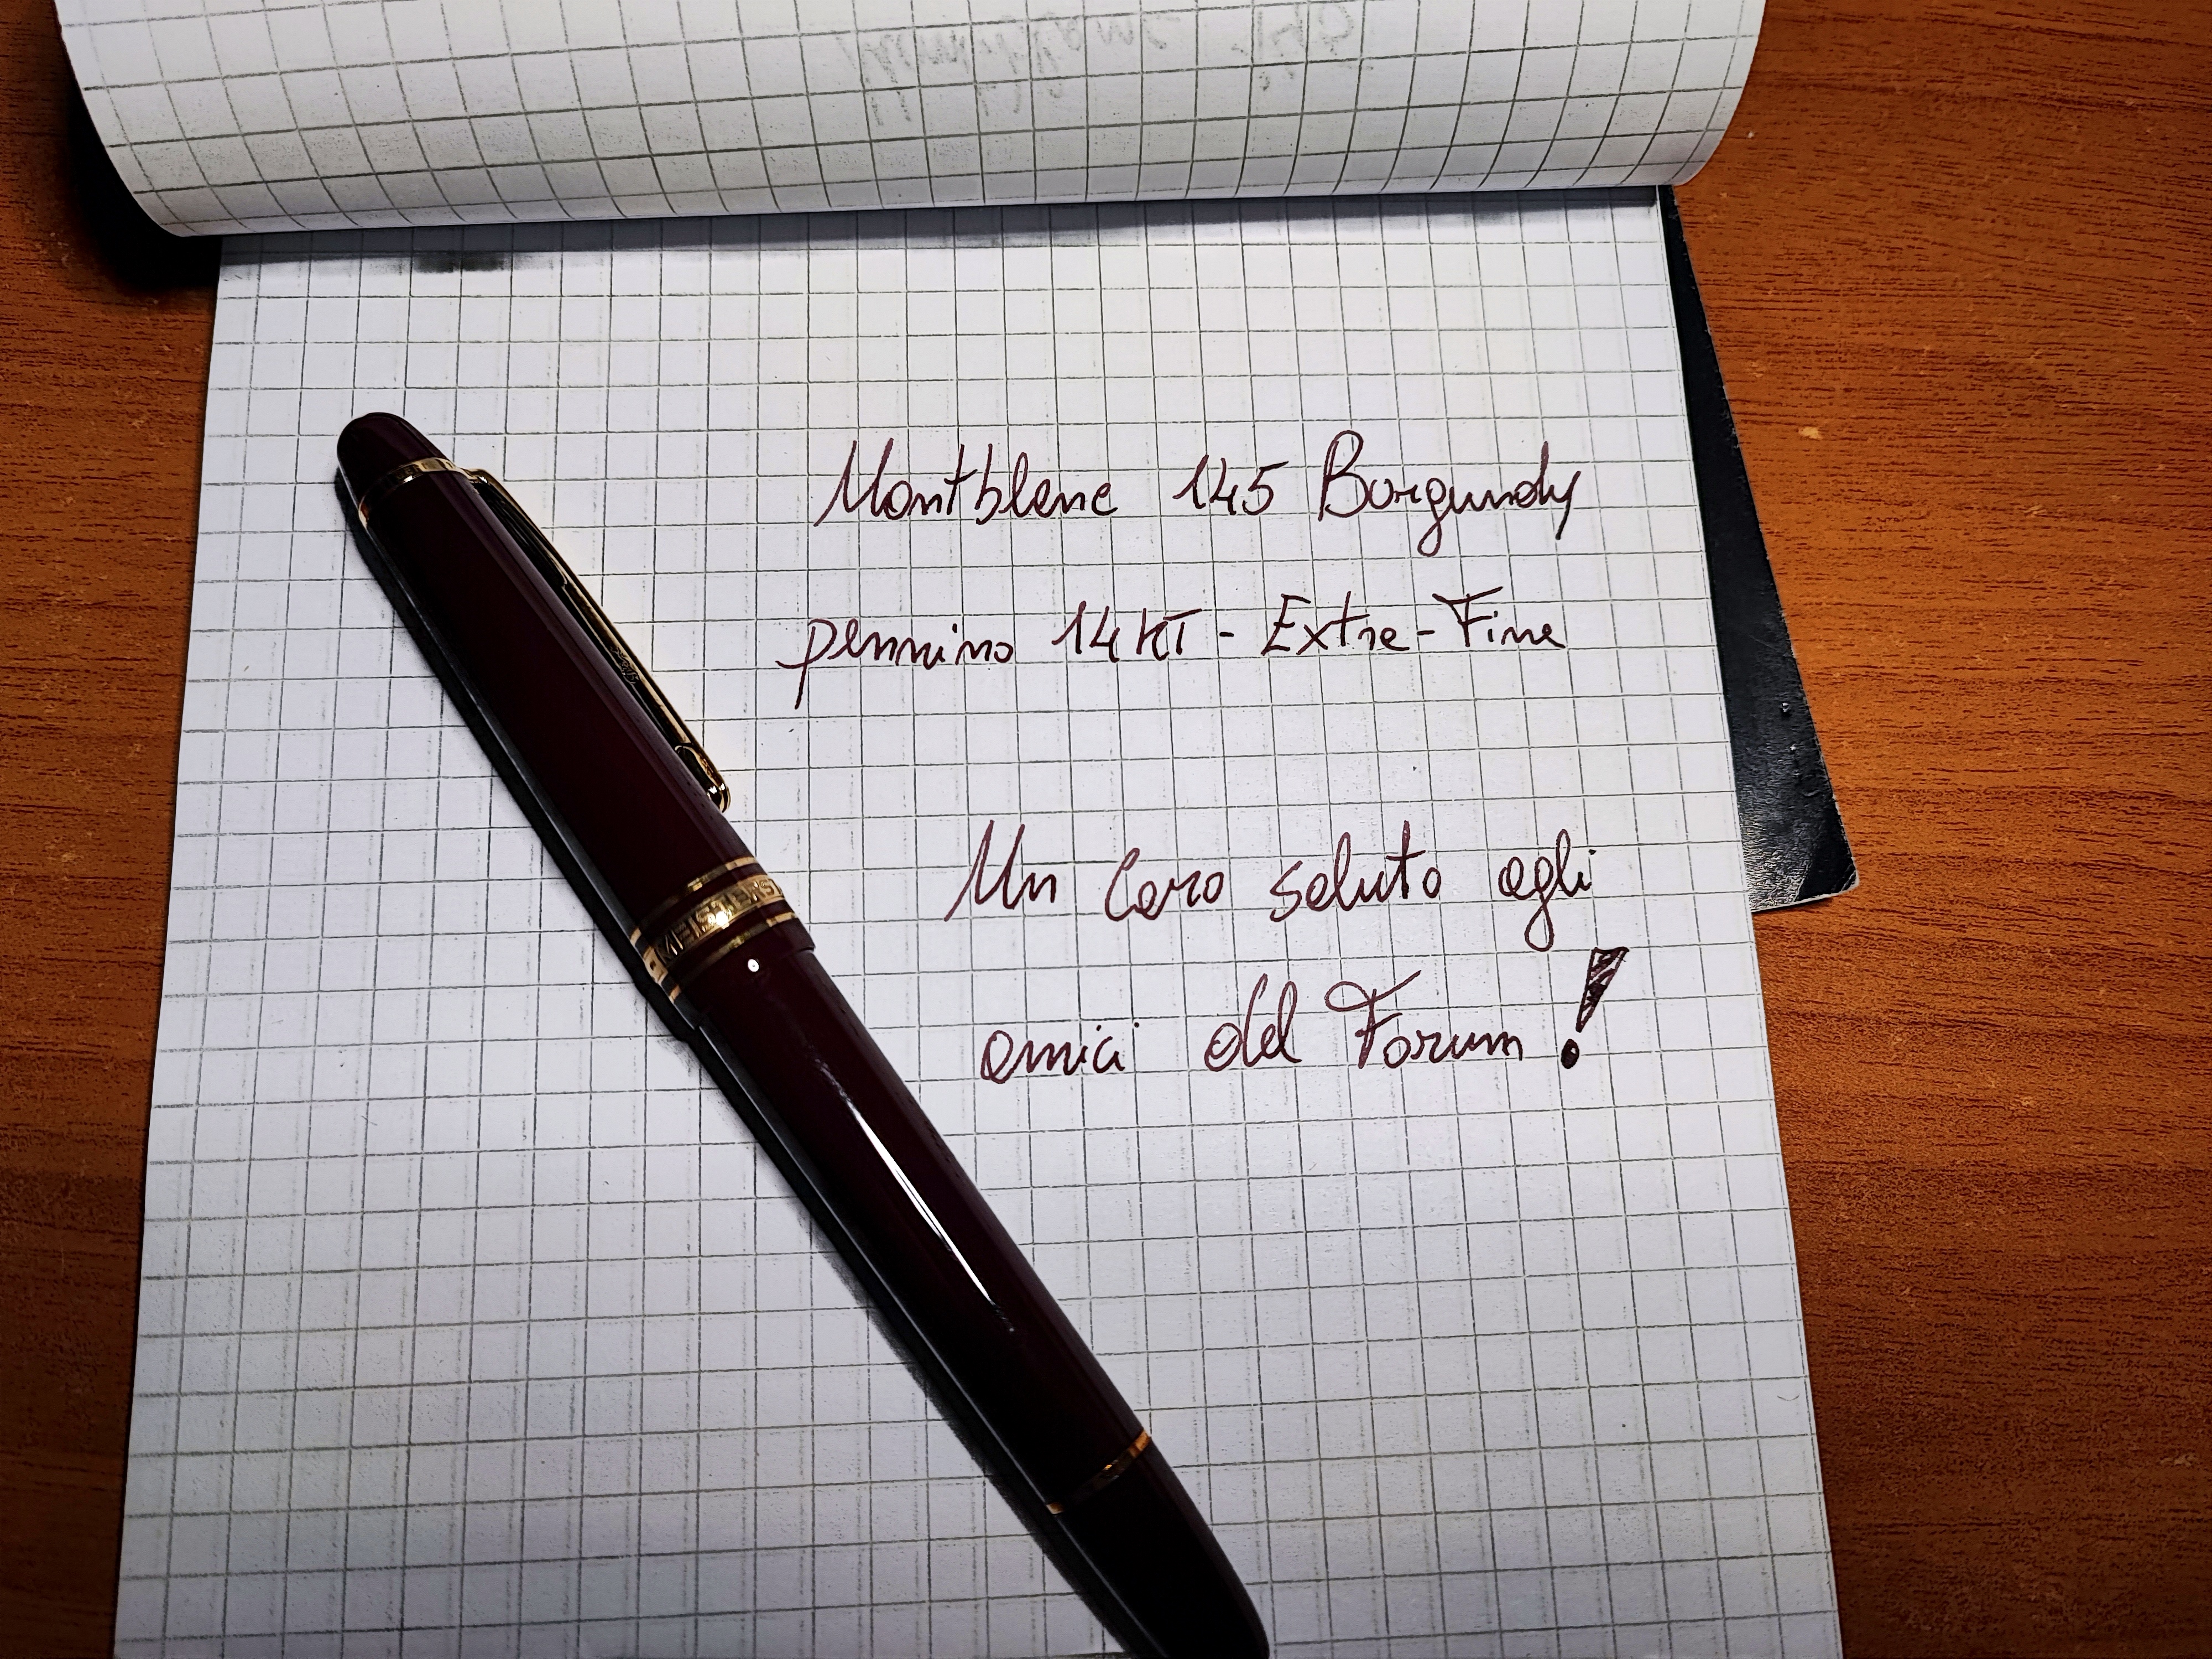 Montblanc 145 Borgundy
pennino 14 KT - Extra-Fine
Un caro saluto agli
amici del Forum!
MEISTERST